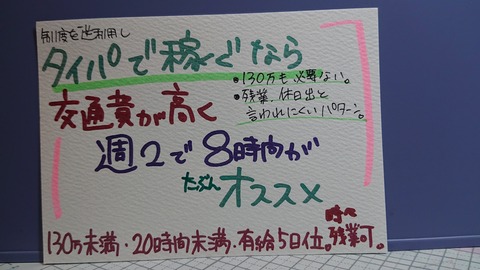 制度を逆利用し
タイパで稼ぐなら
•130万も必要ない。
•残業、休日出と
言われにくいパターン。
交通費が高く
週2で8時間が
たぶん
オススメ
130万未満・20時間未満・有給5日位。時々残業可。